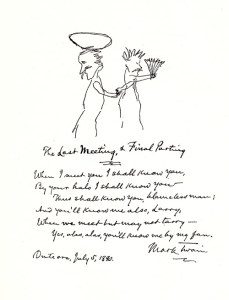 The Last Meeting, & Final Parting
When I meet you I shall know you,
By your halo I shall know you—
Thus shall know you, blameless man;
And you'll know me also, Larry,
When we meet but may not tarry—
Yes, alas, alas, you'll know me by my fan.
Mark Twain
July 5, 1895.